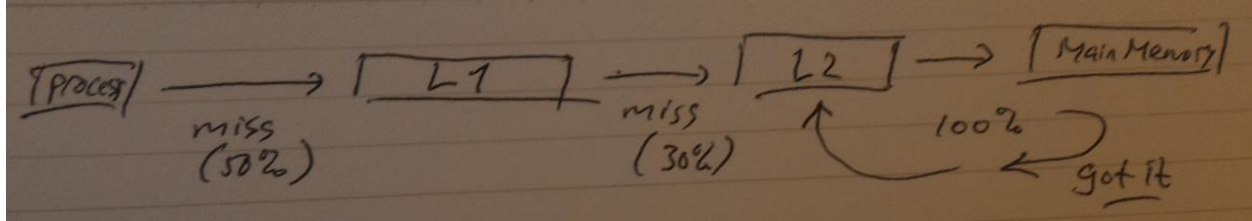 Process L1 L2 Main Memory
miss miss 100%
(50%) (30%) got it